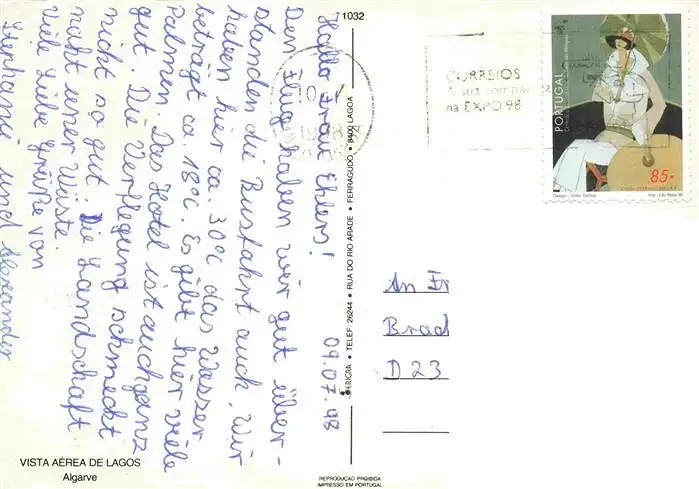 Hallo Frau Ehlers! 09.07.98
Den Flug haben wir gut über-
standen die Busfahrt auch. Wir
haben hier ca. 30°C das Wasser
beträgt ca. 18°C. Es gibt hier viele
Palmen. Das Hotel ist auch ganz
gut. Die Verpflegung schmeckt
nicht so gut. Die Landschaft
naht einer Wüste.
Viele liebe Grüße von
Stephanie und Alexander
VISTA AÉREA DE LAGOS
Algarve
1032
TELEF. 26244 • RUA DO RIO ARADE • FERRAGUDO • 8400 LAGOA
REPRODUÇÃO PROIBIDA
IMPRESSO EM PORTUGAL
CORREIOS
na EXPO 98
PORTUGAL
85.-
An Fr
Brad
D 23